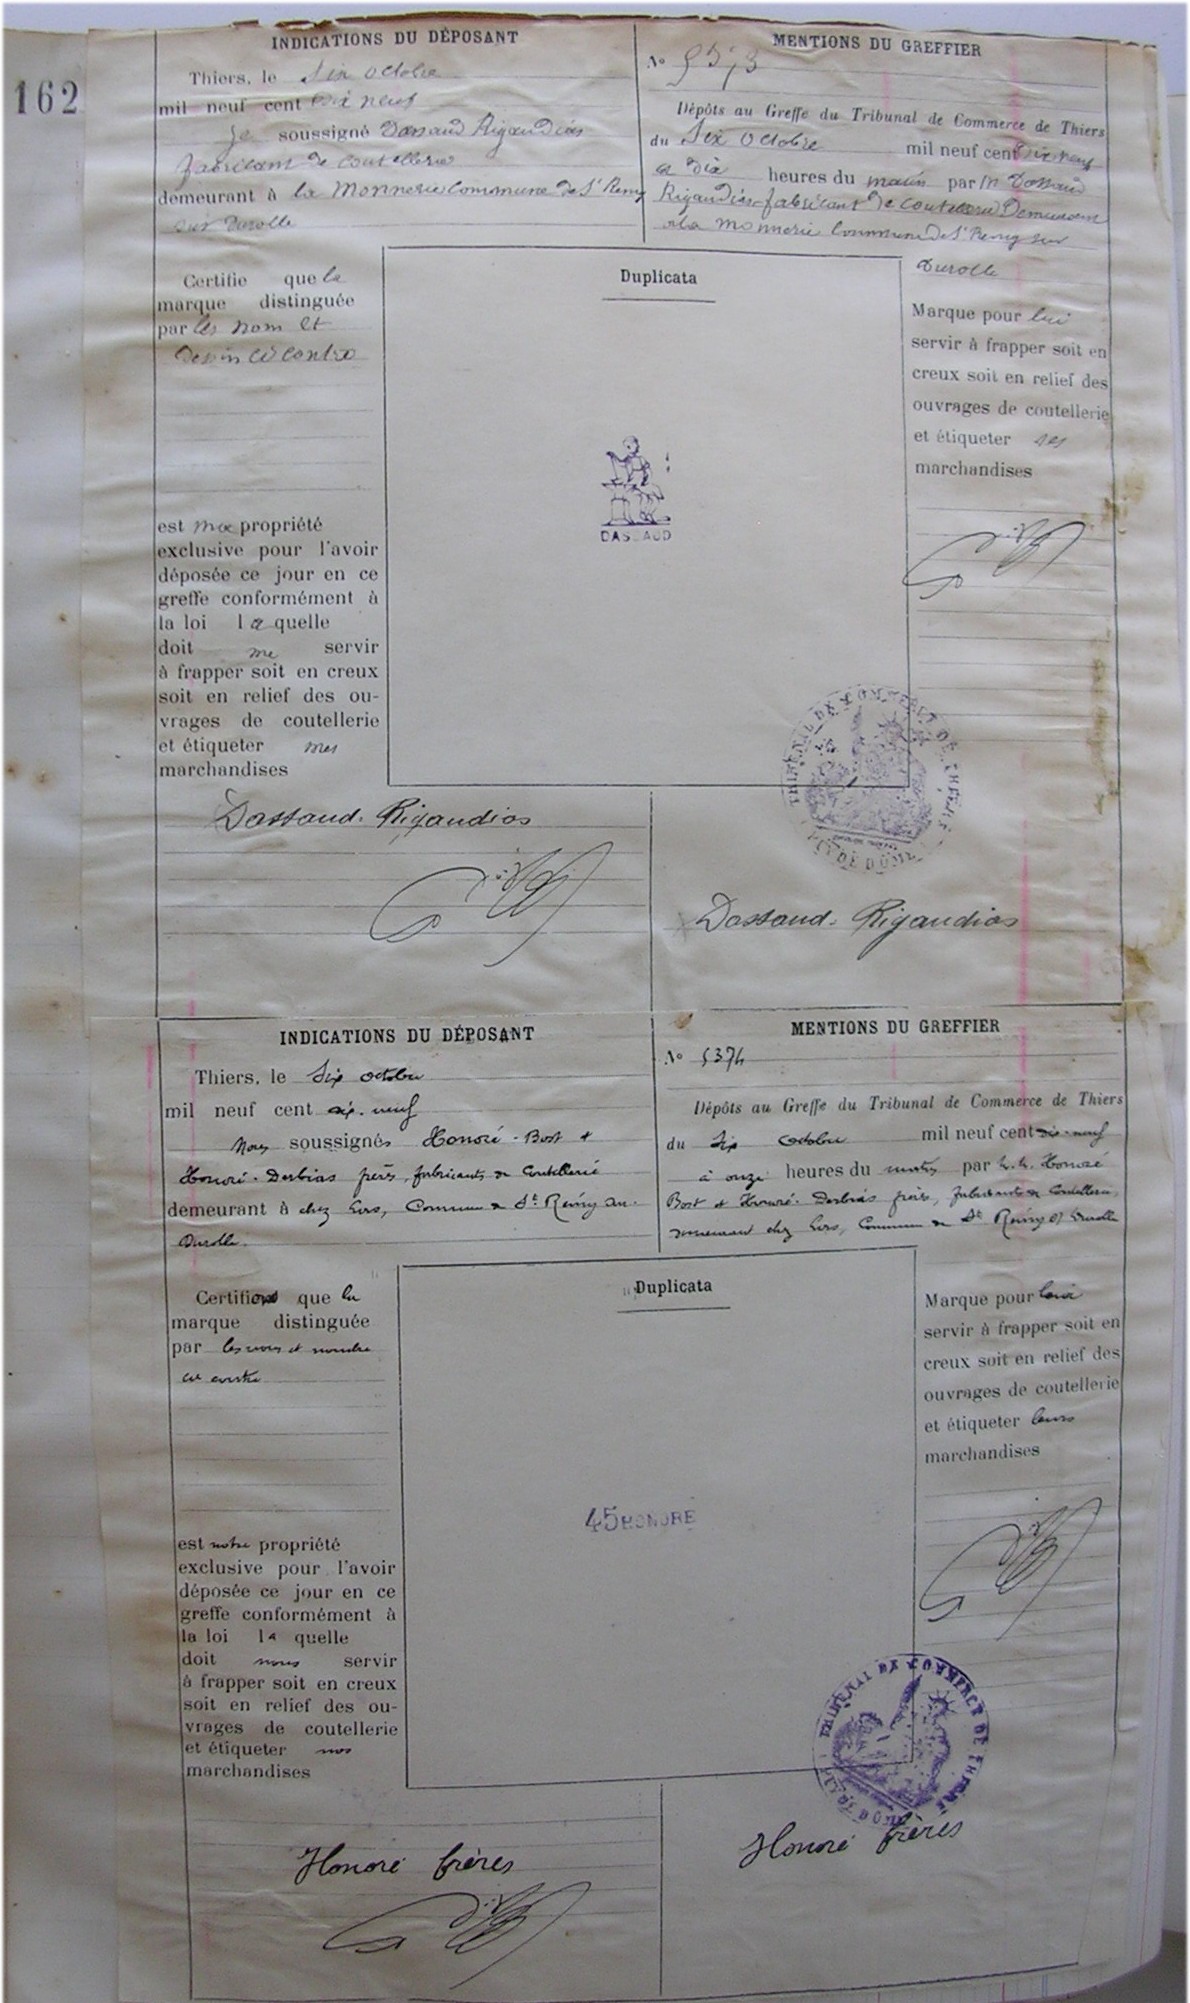 162
INDICATIONS DU DÉPOSANT
Thiers, le Six octobre
mil neuf cent dix neuf
Je soussigné Dassaud Rigaudias
fabricant de coutellerie
demeurant à la Monnerie Commune de St Remy
sur Durolle
MENTIONS DU GREFFIER
No 5373
Dépôts au Greffe du Tribunal de Commerce de Thiers
du Six Octobre mil neuf cent dix neuf
à dix heures du matin par M Dassaud
Rigaudias fabricant de coutellerie Demeurant
à la Monnerie Commune de St Remy sur
Durolle
Certifie que la
marque distinguée
par les nom et
dessin ci contre
est ma propriété
exclusive pour l'avoir
déposée ce jour en ce
greffe conformément à
la loi la quelle
doit me servir
à frapper soit en creux
soit en relief des ou-
vrages de coutellerie
et étiqueter mes
marchandises
Duplicata
DASSAUD
Marque pour lui
servir à frapper soit en
creux soit en relief des
ouvrages de coutellerie
et étiqueter ses
marchandises
TRIBUNAL DE COMMERCE DE THIERS
PUY DE DÔME
Dassaud-Rigaudias
Dassaud-Rigaudias
INDICATIONS DU DÉPOSANT
Thiers, le Six octobre
mil neuf cent dix-neuf
Nous soussignés Honoré-Bost et
Honoré-Dasbias frères, fabricants de Coutellerie
demeurant à chez Commune de St Remy sur
Durolle
MENTIONS DU GREFFIER
No 5374
Dépôts au Greffe du Tribunal de Commerce de Thiers
du Six octobre mil neuf cent dix-neuf
à onze heures du matin par M.M. Honoré
Bost et Honoré-Dasbias frères, fabricants de Coutellerie,
demeurant chez Commune de St Remy s/ Durolle
Certifions que la
marque distinguée
par les nom et nombre
ci contre
est notre propriété
exclusive pour l'avoir
déposée ce jour en ce
greffe conformément à
la loi la quelle
doit nous servir
à frapper soit en creux
soit en relief des ou-
vrages de coutellerie
et étiqueter nos
marchandises
Duplicata
45 HONORÉ
Marque pour leur
servir à frapper soit en
creux soit en relief des
ouvrages de coutellerie
et étiqueter leurs
marchandises
TRIBUNAL DE COMMERCE DE THIERS
PUY DE DÔME
Honoré frères
Honoré frères